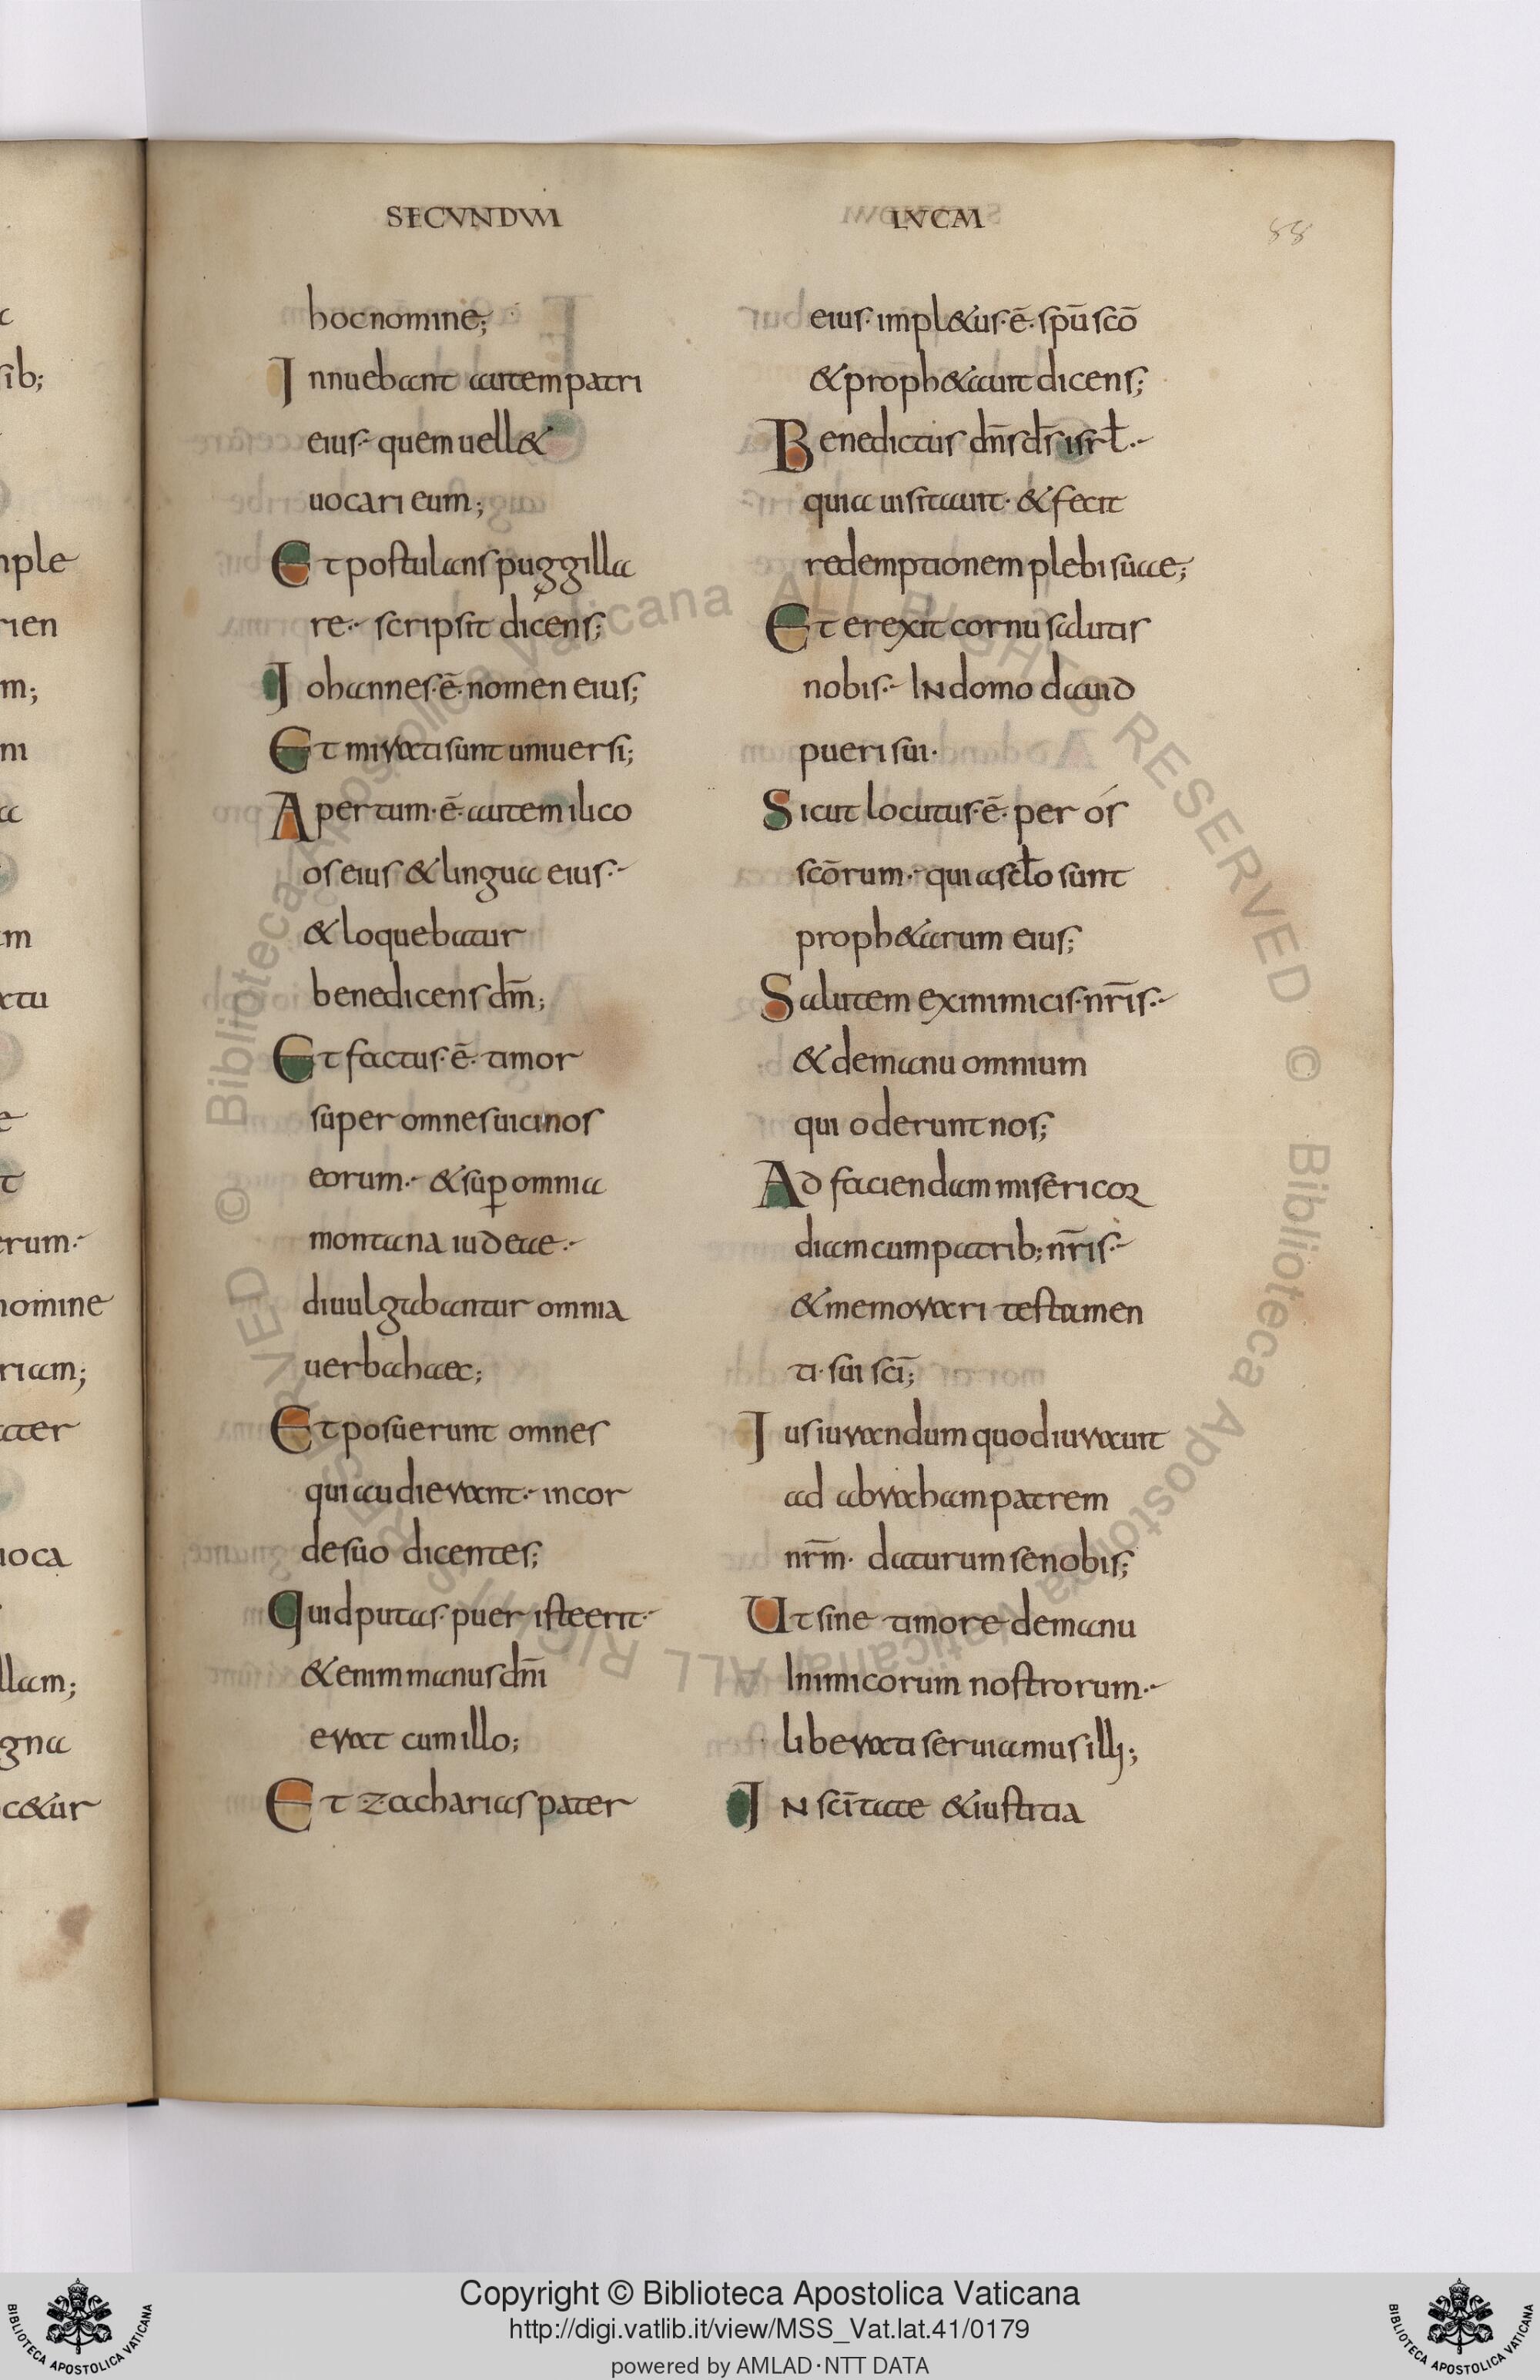 SECVNDVM
LVCAM
88
hoc nomine;
Innuebant autem patri
eius·- quem uell&
uocari eum;
Et postulans puggilla
re·- scripsit dicens;
Johannes·ē·nomen eius;
Et mirati sunt uniuersi;
Apertum·ē·autem ilico
os eius & lingua eius·-
& loquebatur
benedicens dm̄;
Et factus·ē·timor
super omnes uicinos
eorum·- & suꝑ omnia
montana iudeae·-
diuulgabantur omnia
uerba haec;
Et posuerunt omnes
qui audierant·- in cor
de suo dicentes;
Quid putas·puer iste erit·-
& enim manus dn̄i
erat cum illo;
Et zacharias pater
eius·impl&us·ē·spū scō
& proph&auit dicens;
Benedictus dn̄s ds̄ isrł·-
quia uisitauit·& fecit
redemptionem plebi suae;
Et erexit cornu salutis
nobis·- In domo dauid
pueri sui·
Sicut locutus·ē·per ós
scōrum·- qui a scło sunt
proph&arum eius;
Salutem ex inimicis·nr̄is·-
& de manu omnium
qui oderunt nos;
Ad faciendam misericor
diam cum patrib; nr̄is·-
& memorari testamen
ti·sui scī;
Jusiurandum quod iurauit
ad abraham patrem
nr̄m· daturum se nobis;
Ut sine timore de manu
Inimicorum nostrorum·-
liberati seruiamus illi;
In scītate & iustitia
sib;
mple
rien
m;
ni
m
atu
erum·-
nomine
riam;
ater
uoca
llam;
gna
c&ur
Copyright © Biblioteca Apostolica Vaticana
http://digi.vatlib.it/view/MSS_Vat.lat.41/0179
powered by AMLAD·NTT DATA
BIBLIOTECA APOSTOLICA VATICANA
BIBLIOTECA APOSTOLICA VATICANA
© Biblioteca Apostolica Vaticana ALL RIGHTS RESERVED © Biblioteca Apostolica Vaticana ALL RIGHTS RESERVED